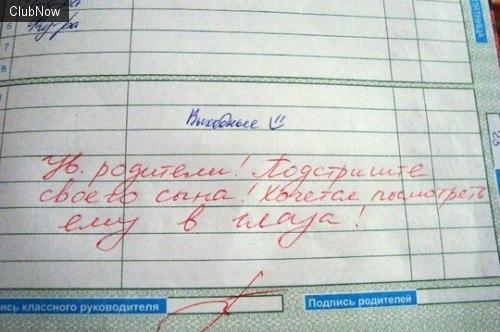 ClubNow
6
8
ПЯТНИЦА
Выходные
23
Ув. родители! Подстригите
своего сына! Хочется посмотреть
ему в глаза!
ись классного руководителя
Подпись родителей